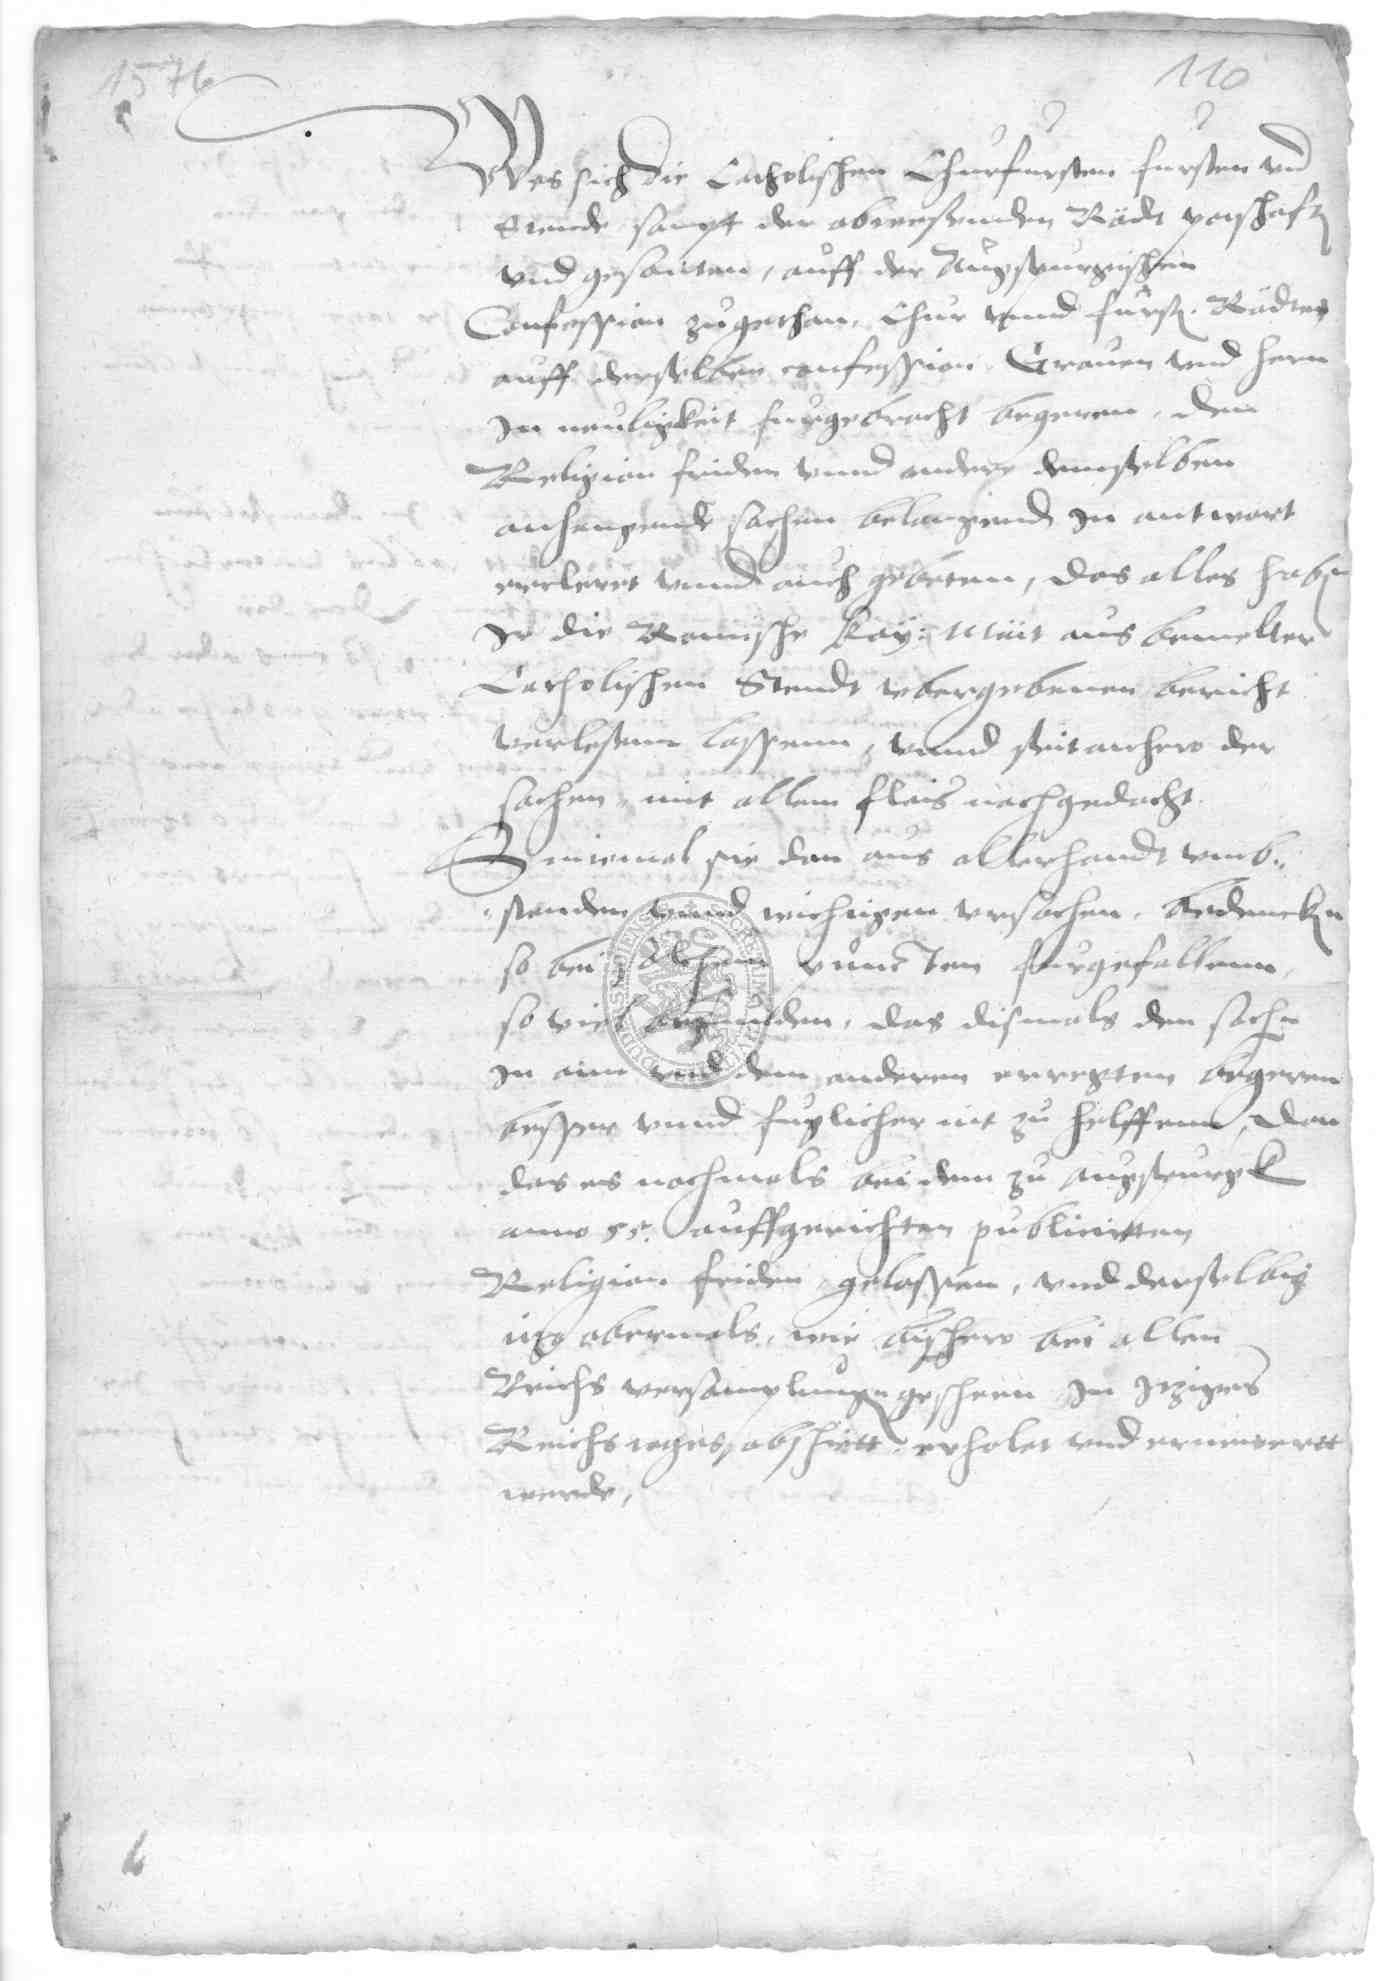 1576
110
Was sich die Catholischen Churfursten fursten vnd
Stende sampt der abwesenden Rädt potschafft
vnd gesanten, auff der Augspurgischen
Confession zugethan, Chur vnnd furst. Rädten
auff derselben confession Grauen vnd hern
In neuligkeit furgebracht begeren, den
Religion friden vnnd andere demselben
anhangende sachen belangend In antwort
ercleret vnnd auch gebeten, das alles haben
Ir die Romische Kay: Mait aus bemelter
Catholischen Stendt vbergebenen bericht
verlesenn lassenn, vnnd seit anhero der
sachen mit allem fleis nachgedacht
Sintemal sie dan aus allerhandt vmb-
stenden vnnd wichtigen vrsachen, bedencken
so bei puncten furgefallenn,
so viel befunden, das dismals den sachen
In ein vnd dem anderen erregten begeren
besser vnnd fuglicher nit zu helffenn, dan
das es nochmals bei dem zu Augspurgk
anno 55. auffgerichten publicirtten
Religion friden gelassen, vnd derselbig
itzo abermals, wie bishero bei allen
Reichs versamplungen geschen In Itziges
Reichs tages abschiett erholet vnd ernewertt
werde,
6